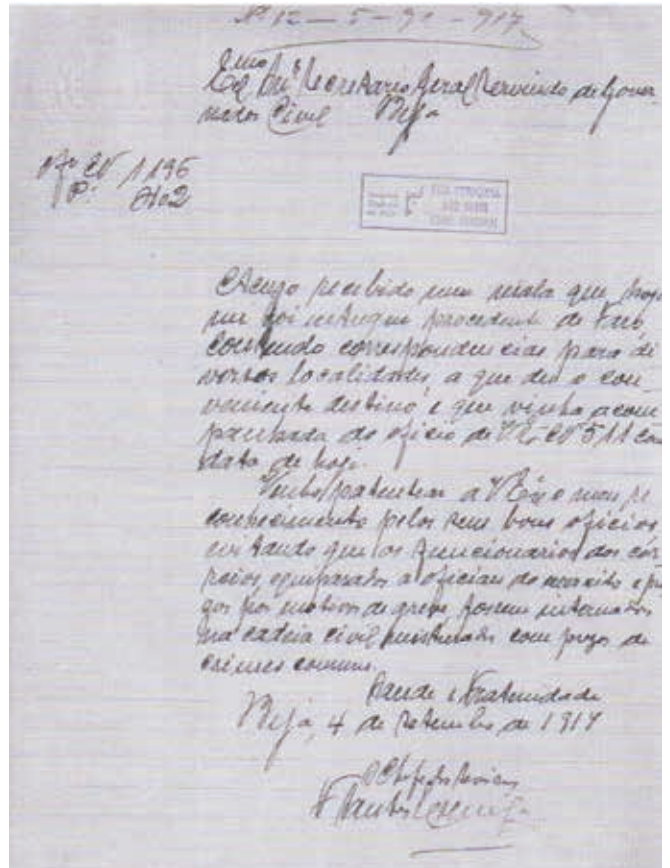 Nº 12 - 5 - 91 - 917
Exmo
Snr. Secretario Geral servindo de Gover
nador Civil Beja
Nº EV 1196
P.
Acuso recebido uma mala que hoje
me foi entregue procedente de Faro,
contendo correspondencias para di
versas localidades, a que dei o con
veniente destino e que vinha acom
panhada do oficio de V. Ex. Nº EV 511 com
data de hoje.
Venho patentear a V. Exa o meu re
conhecimento pelos seus bons oficios
evitando que os funcionarios dos cor
reios equiparados a oficiais do exercito e pre
sos por motivos de greve fossem internados
na cadeia civil misturados com prezos de
crimes comuns.
Saude e Fraternidade
Beja, 4 de Setembro de 1917
O Chefe dos Serviços